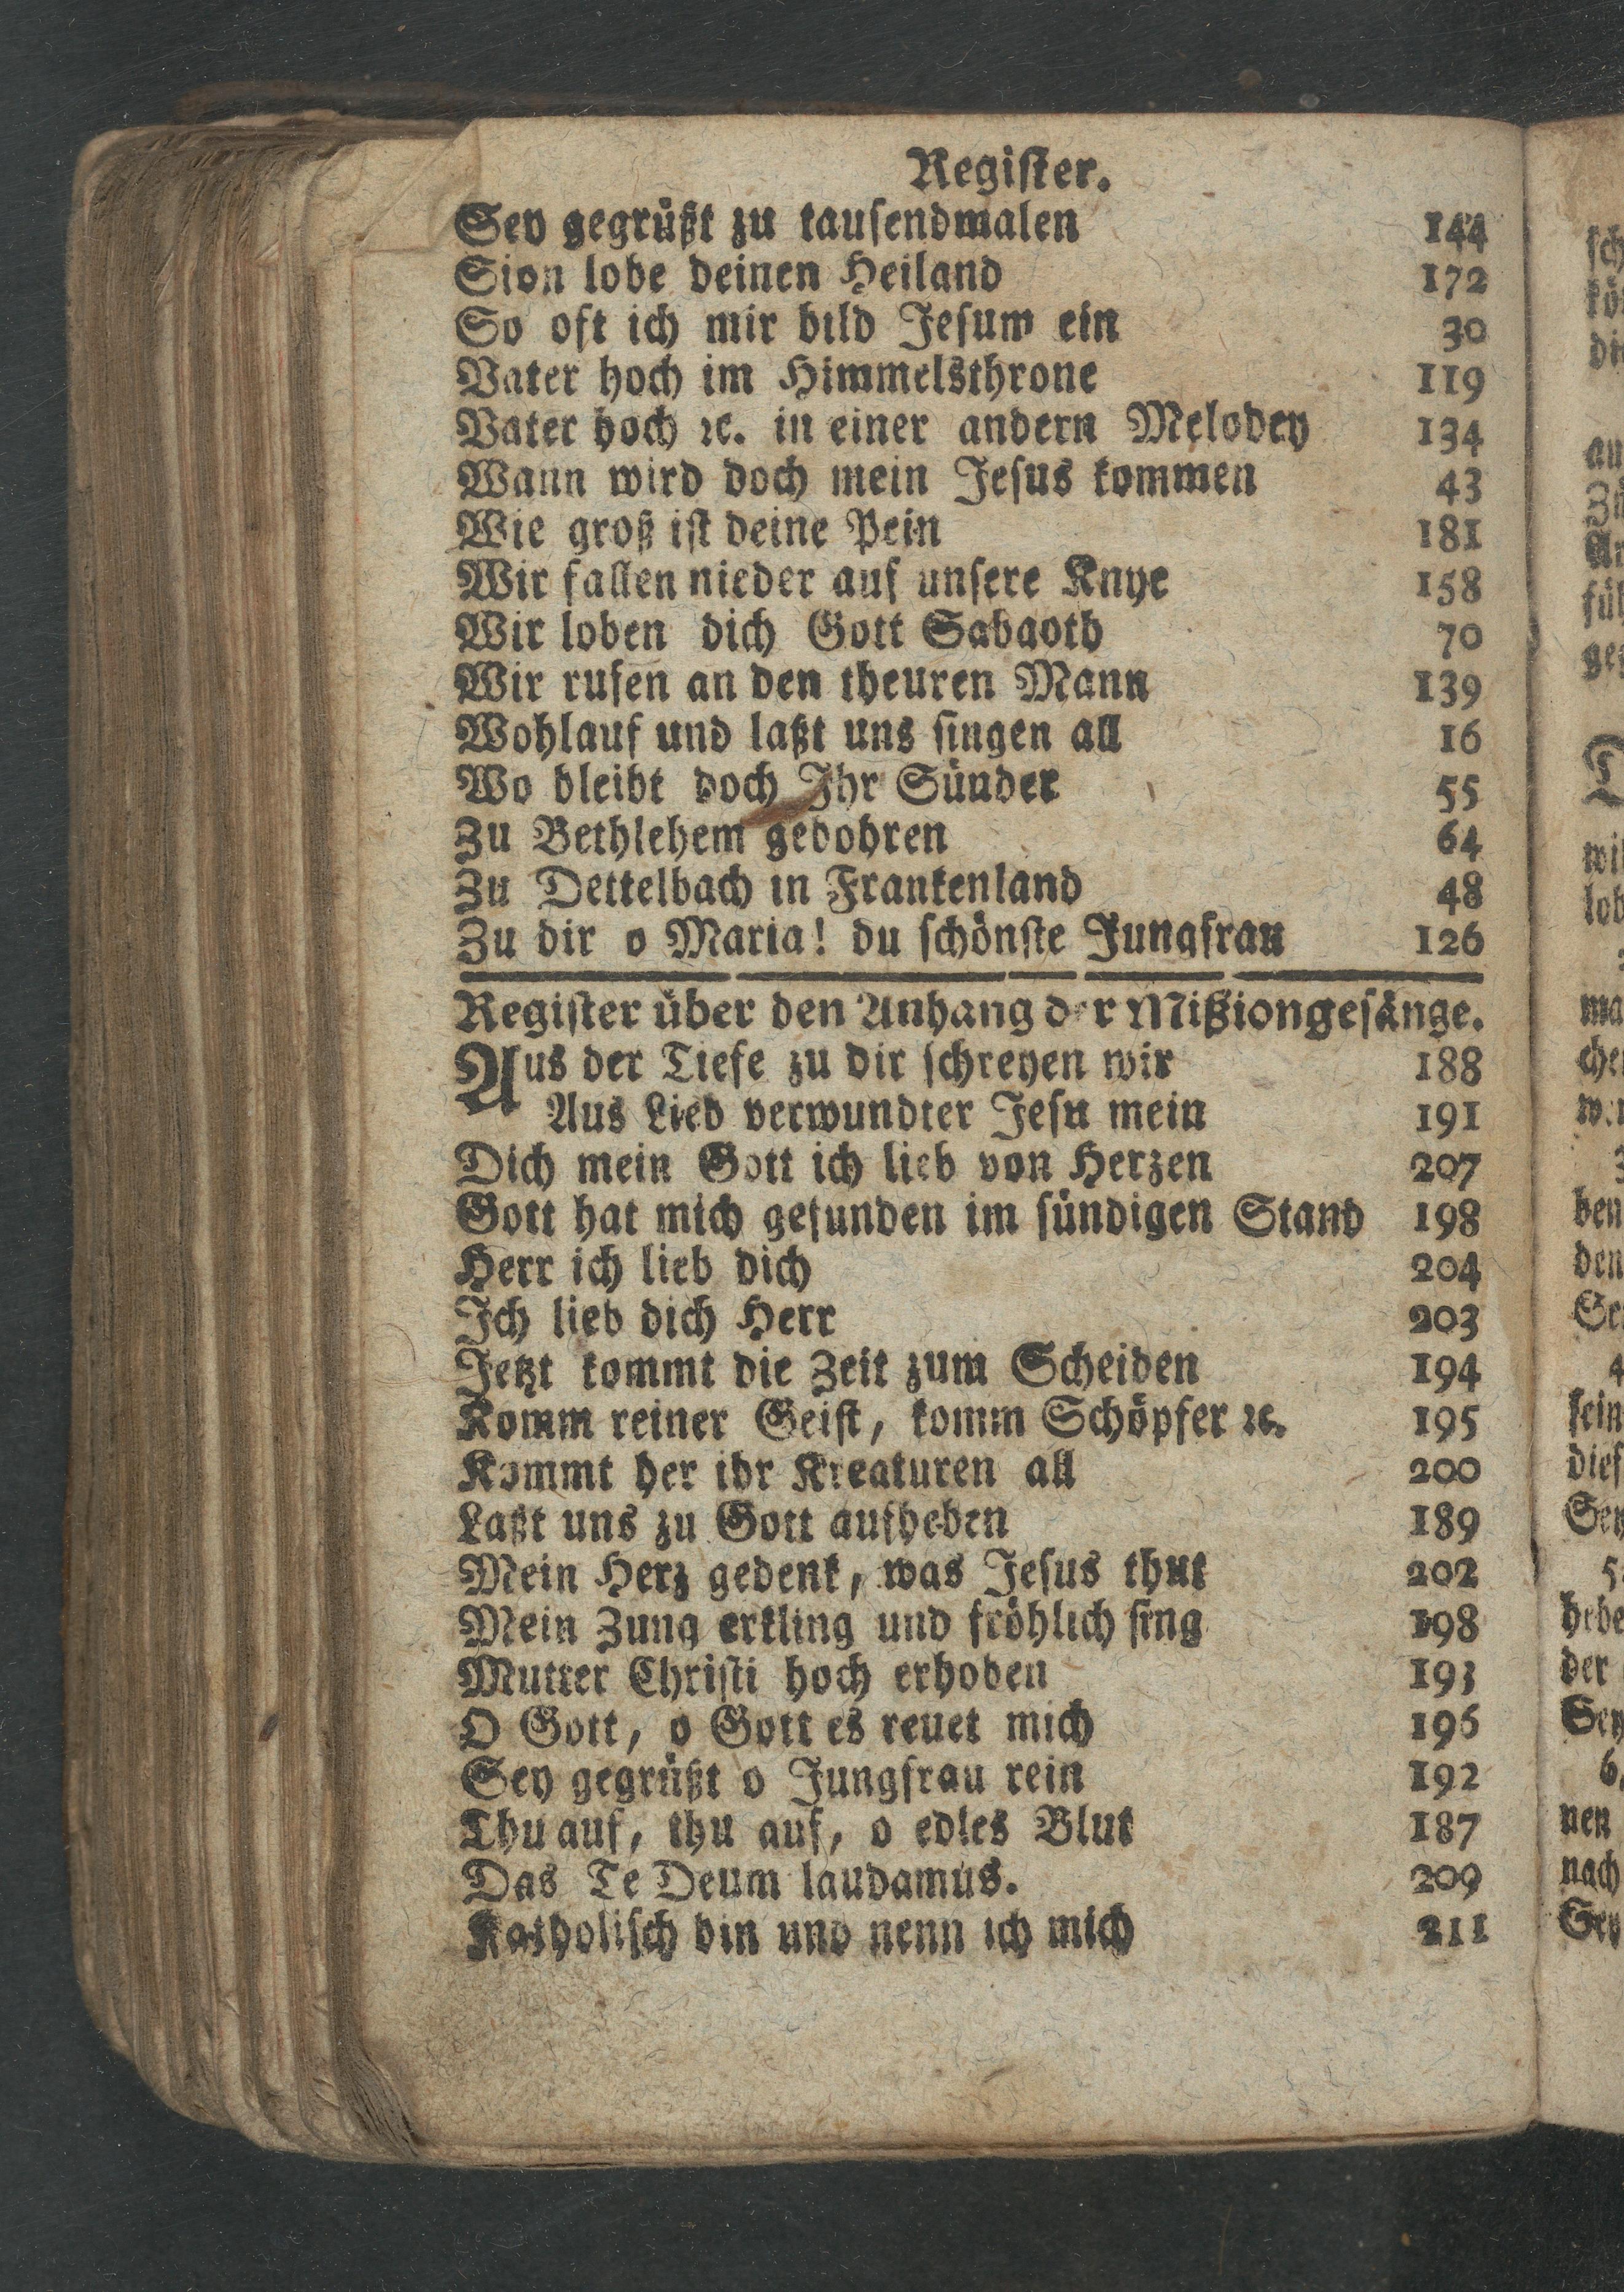 Register.
Sey gegrüßt zu tausendmalen 144
Sion lobe deinen Heiland 172
So oft ich mir bild Jesum ein 30
Vater hoch im Himmelsthrone 119
Vater hoch ꝛc. in einer andern Melodey 134
Wann wird doch mein Jesus kommen 43
Wie groß ist deine Pein 181
Wir fallen nieder auf unsere Knye 158
Wir loben dich Gott Sabaoth 70
Wir rufen an den theuren Mann 139
Wohlauf und laßt uns singen all 16
Wo bleibt doch Ihr Sünder 55
Zu Bethlehem gebohren 64
Zu Dettelbach in Frankenland 48
Zu dir o Maria! du schönste Jungfrau 126
Register über den Anhang der Mißiongesänge.
Aus der Tiefe zu dir schreyen wir 188
Aus Lieb verwundter Jesu mein 191
Dich mein Gott ich lieb von Herzen 207
Gott hat mich gefunden im sündigen Stand 198
Herr ich lieb dich 204
Ich lieb dich Herr 203
Jetzt kommt die Zeit zum Scheiden 194
Komm reiner Geist, komm Schöpfer ꝛc. 195
Kommt her ihr Kreaturen all 200
Laßt uns zu Gott aufheben 189
Mein Herz gedenk, was Jesus thut 202
Mein Zung erkling und fröhlich sing 198
Mutter Christi hoch erhoben 193
O Gott, o Gott es reuet mich 196
Sey gegrüßt o Jungfrau rein 192
Thu auf, thu auf, o edles Blut 187
Das Te Deum laudamus. 209
Katholisch bin und nenn ich mich 211